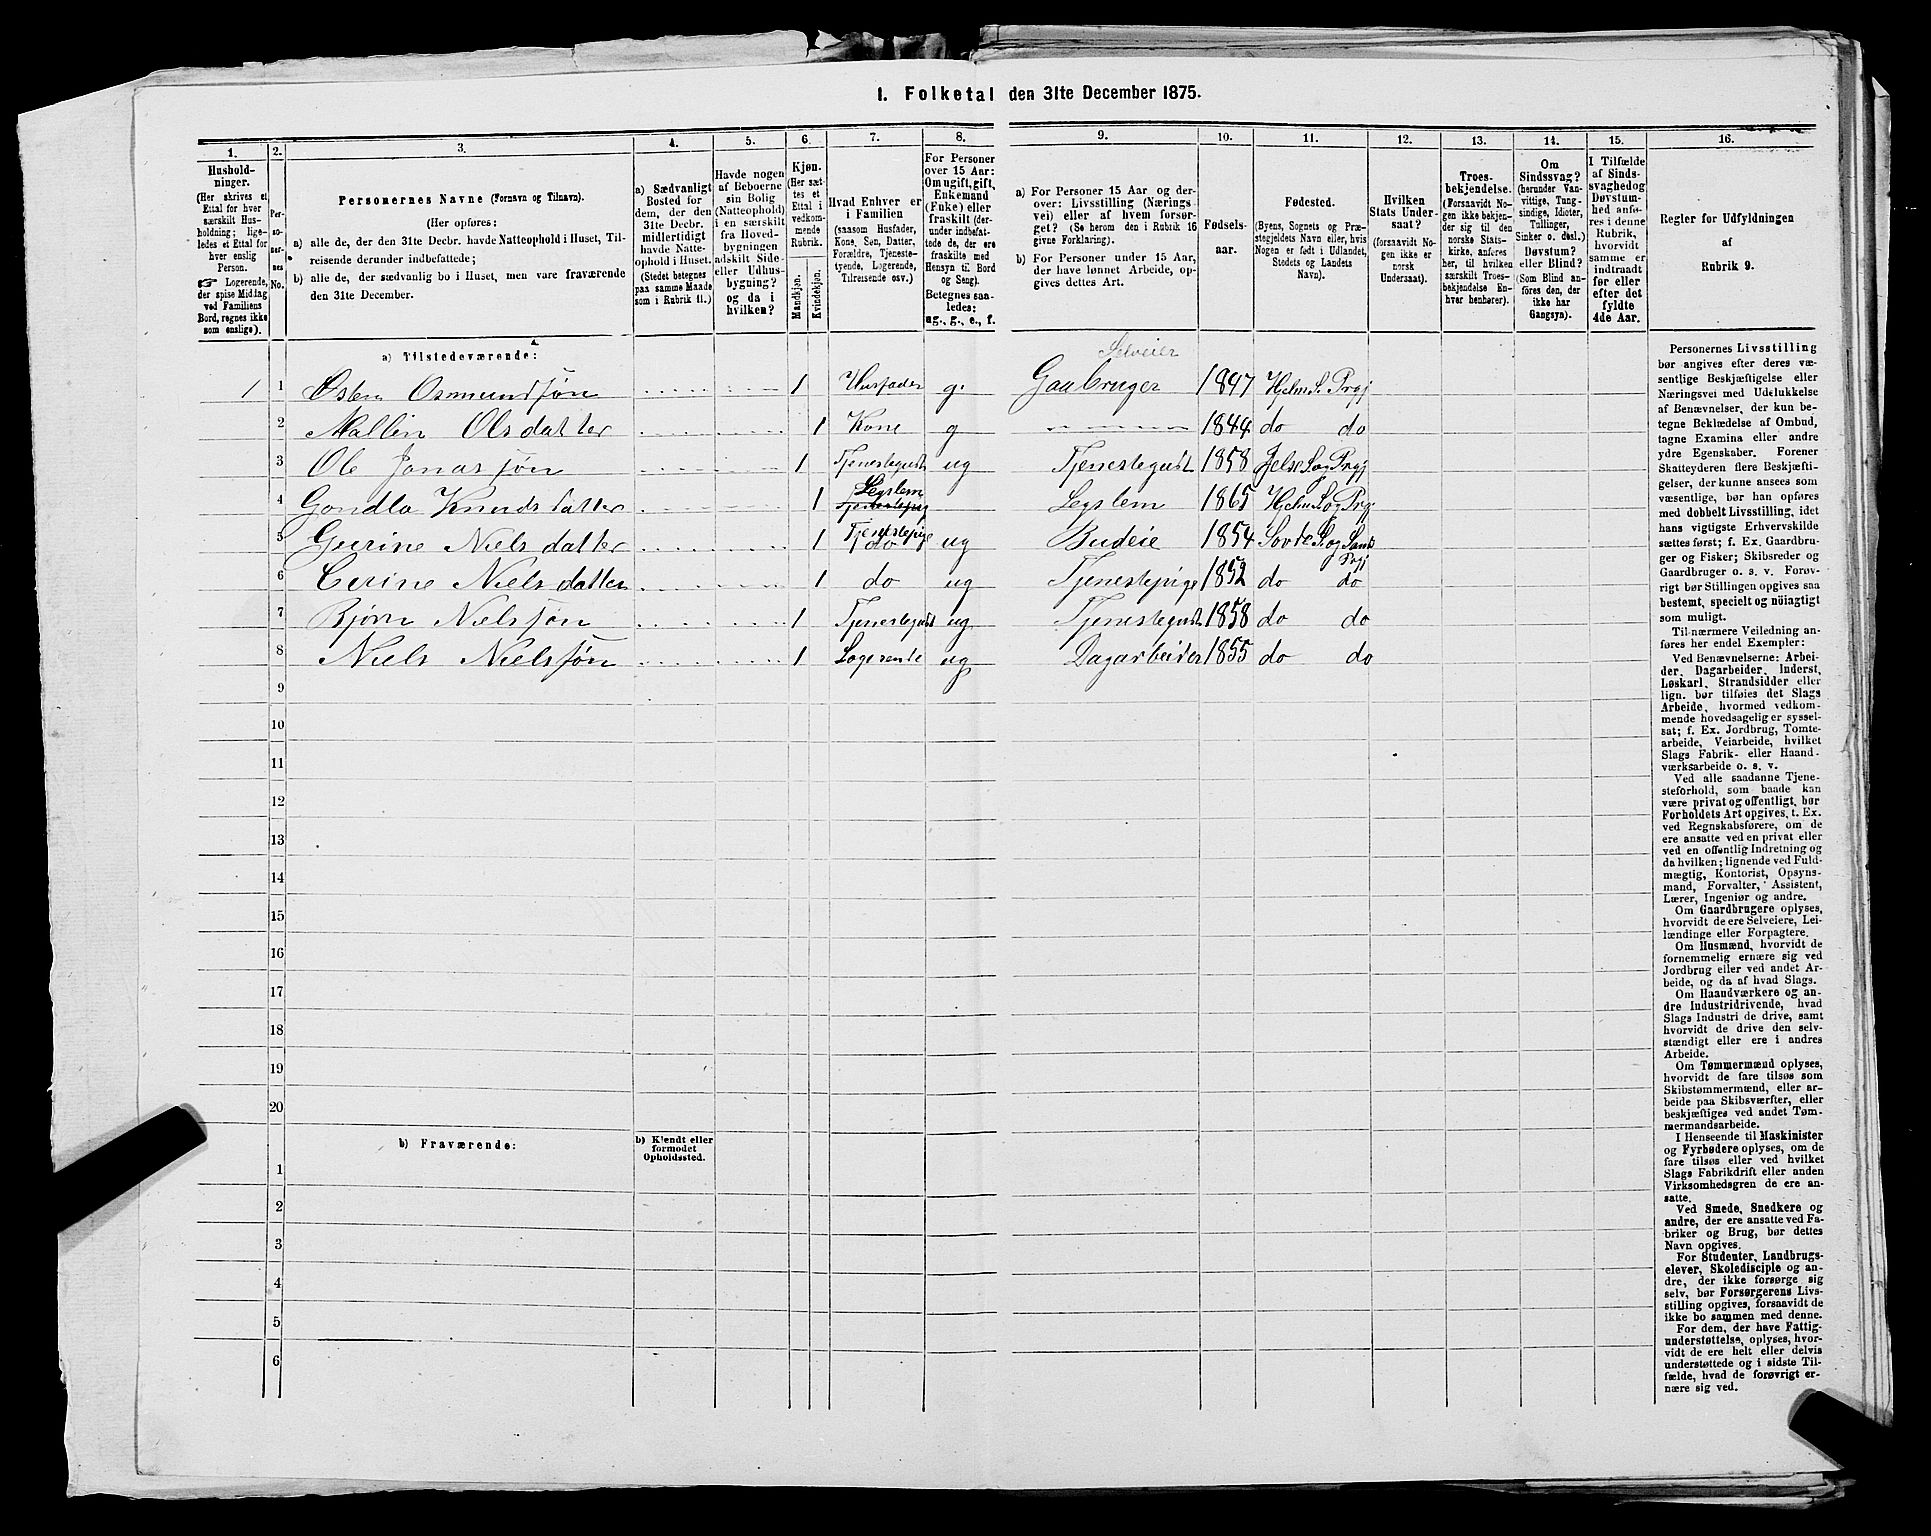 1. Folketal den 31te December 1875.
1.
2.
3.
4.
5.
6.
7.
8.
9.
10.
11.
12.
13.
14.
15.
16.
Hushold-
ninger.
(Her skrives et
Ettal for hver
særskilt Hus-
holdning; lige-
ledes et Ettal for
hver enslig
Person.
☞ Logerende,
der spise Middag
ved Familiens
Bord, regnes ikke
som enslige).
Per-
so-
ner-
nes
No.
Personernes Navne (Fornavn og Tilnavn).
(Her opføres:
a) alle de, der den 31te Decbr. havde Natteophold i Huset, Til-
reisende derunder indbefattede;
b) alle de, der sædvanlig bo i Huset, men vare fraværende
den 31te December.
a) Sædvanligt
Bosted for
dem, der den
31te Decbr.
midlertidigt
havde Natte-
ophold i Huset.
(Stedet betegnes
paa samme Maade
som i Rubrik 11.)
Havde nogen
af Beboerne
sin Bolig
(Natteophold)
i en særskilt
fra Hoved-
bygningen
adskilt Side-
eller Udhus-
bygning?
og da i
hvilken?
Kjøn.
(Her sæt-
tes et
Ettal i
vedkom-
mende
Rubrik.
Mandkjøn.
Kvindekjøn.
Hvad Enhver er
i Familien
(saasom Husfader,
Kone, Søn, Datter,
Forældre, Tjeneste-
tyende, Logerende,
Tilreisende osv.)
For Personer
over 15 Aar:
Om ugift, gift,
Enkemand
(Enke) eller
fraskilt (der-
under indbefat-
tede de, der ere
fraskilte med
Hensyn til Bord
og Seng).
Betegnes saa-
ledes:
ug., g., e., f.
a) For Personer 15 Aar og der-
over: Livsstilling (Nærings-
vei) eller af hvem forsør-
get? (Se herom den i Rubrik 16
givne Forklaring).
b) For Personer under 15 Aar,
der have lønnet Arbeide, op-
gives dettes Art.
Fødsels-
aar.
Fødested.
(Byens, Sognets og Præ-
stegjeldets Navn eller, hvis
Nogen er født i Udlandet,
Stedets og Landets
Navn).
Hvilken
Stats Under-
saat?
(forsaavidt No-
gen ikke er
norsk
Undersaat).
Troes-
bekjendelse.
(Forsaavidt No-
gen ikke bekjen-
der sig til den
norske Stats-
kirke, anføres
her, til hvilken
særskilt Troes-
bekjendelse En-
hver henhører).
Om
Sindssvag?
(herunder Van-
vittige, Tung-
sindige, Idioter,
Tullinger,
Sinker o. desl.)
Døvstum?
eller Blind?
(Som Blind an-
føres den, der
ikke har
Gangsyn).
I Tilfælde
af Sinds-
svaghed og
Døvstum-
hed anfø-
res i denne
Rubrik,
hvorvidt
samme er
indtraadt
før eller
efter det
fyldte
4de Aar.
Regler for Udfyldningen
af
Rubrik 9.
a) Tilstedeværende:
Selveier
1 1 Østen Osmundsøn 1 Husfader g. Gaabruger 1847 Hjelm S. Prgj
2 Mallin Olsdatter 1 Kone g 1844 do do
3 Ole Jonassøn 1 Tjenestegudt ug Tjenestegudt 1858 Jelse S og Prgj
4 Gondla Knudsdatter 1 Legslem Tjenestepig Legslem 1865 Hjelm S og Prgj
5 Gurine Nielsdatter 1 Tjenestepige do ug Budeie 1854 Sovde S. og Sands Prgj
6 Cerine Nielsdatter 1 do ug Tjenestepige 1852 do do
7 Bjørn Nielssøn 1 Tjenestegudt ug Tjenestegudt 1858 do do
8 Niels Nielssøn 1 Logerende ug Dagarbeider 1855 do do
9
10
11
12
13
14
15
16
17
18
19
20
b) Fraværende:
b) Kjendt eller
formodet
Opholdssted.
1
2
3
4
5
6
Personernes Livsstilling
bør angives efter deres væ-
sentlige Beskjæftigelse eller
Næringsvei med Udelukkelse
af Benævnelser, der kun be-
tegne Beklædelse af Ombud,
tagne Examina eller andre
ydre Egenskaber. Forener
Skatteyderen flere Beskjæfti-
gelser, der kunne ansees som
væsentlige, bør han opføres
med dobbelt Livsstilling, idet
hans vigtigste Erhvervskilde
sættes først; f. Ex. Gaardbru-
ger og Fisker; Skibsreder og
Gaardbruger o. s. v. Forøv-
rigt bør Stillingen opgives saa
bestemt, specielt og nøiagtigt
som muligt.
Til nærmere Veiledning an-
føres her endel Exempler:
Ved Benævnelserne: Arbei-
der, Dagarbeider, Inderst,
Løskarl, Strandsidder eller
lign. bør tilføies det Slags
Arbeide, hvormed vedkom-
mende hovedsagelig er syssel-
sat; f. Ex. Jordbrug, Tomte-
arbeide, Veiarbeide, hvilket
Slags Fabrik- eller Haand-
værksarbeide o. s. v.
Ved alle saadanne Tjene-
steforhold, som baade kan
være privat og offentligt, bør
Forholdets Art opgives, t. Ex.
ved Regnskabsførere, om de
ere ansatte ved en privat eller
ved en offentlig Indretning og
da hvilken; lignende ved Fuld-
mægtig, Kontorist, Opsyns-
mand, Forvalter, Assistent,
Lærer, Ingeniør og andre.
Om Gaardbrugere oplyses,
hvorvidt de ere Selveiere, Lei-
lændinge eller Forpagtere.
Om Husmænd, hvorvidt de
fornemmelig ernære sig ved
Jordbrug eller ved andet Ar-
beide, og da af hvad Slags.
Om Haandværkere og an-
dre Industridrivende, hvad
Slags Industri de drive, samt
hvorvidt de drive den selv-
stændigt eller ere i andres
Arbeide.
Om Tømmermænd oplyses,
hvorvidt de fare tilsøs som
Skibstømmermænd, eller ar-
beide paa Skibsværfter, eller
beskjæftiges ved andet Tøm-
mermandsarbeide.
I Henseende til Maskinister
og Fyrbødere oplyses, om de
fare tilsøs eller ved hvilket
Slags Fabrikdrift eller anden
Virksomhedsgren de ere an-
satte.
Ved Smede, Snedkere og
andre, der ere ansatte ved Fa-
briker og Brug, bør dettes
Navn opgives.
For Studenter, Landbrugs-
elever, Skoledisciple og an-
dre, der ikke forsørge sig
selv, bør Forsørgerens Livs-
stilling opgives, forsaavidt de
ikke bo sammen med denne.
For dem, der have Fattig-
understøttelse, oplyses, hvor-
vidt de ere helt eller delvis
understøttede og i sidste Til-
fælde, hvad de forøvrigt er-
nære sig ved.